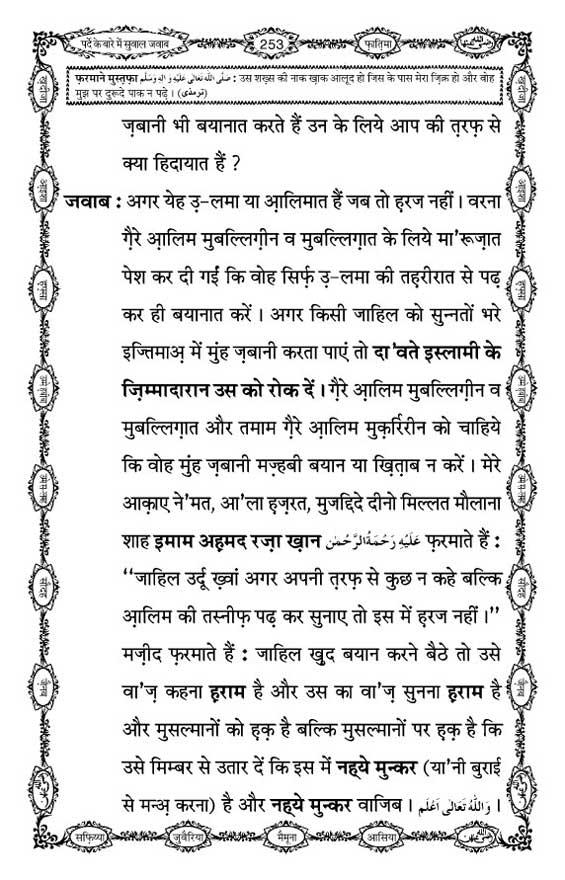 पर्दे के बारे में सुवाल जवाब 253 फ़ातिमा
फ़रमाने मुस्तफ़ा صَلَّى اللهُ تَعَالٰى عَلَيْهِ وَاٰلِهٖ وَسَلَّم : उस शख़्स की नाक ख़ाक आलूद हो जिस के पास मेरा ज़िक्र हो और वोह
मुझ पर दुरूदे पाक न पढ़े । (ترمذی)
ज़बानी भी बयानात करते हैं उन के लिये आप की त़रफ़ से
क्या हिदायात हैं ?
जवाब : अगर येह उ़-लमा या आ़लिमात हैं जब तो ह़रज नहीं । वरना
ग़ैरे आ़लिम मुबल्लिग़ीन व मुबल्लिग़ात के लिये मा'रूज़ात
पेश कर दी गईं कि वोह सिर्फ़ उ़-लमा की तह़रीरात से पढ़
कर ही बयानात करें । अगर किसी जाहिल को सुन्नतों भरे
इज्तिमाअ़ में मुंह ज़बानी करता पाएं तो दा'वते इस्लामी के
ज़िम्मादारान उस को रोक दें । ग़ैरे आ़लिम मुबल्लिग़ीन व
मुबल्लिग़ात और तमाम ग़ैरे आ़लिम मुक़र्रिरीन को चाहिये
कि वोह मुंह ज़बानी मज़्हबी बयान या ख़ित़ाब न करें । मेरे
आक़ाए ने'मत, आ'ला ह़ज़रत, मुजद्दिदे दीनो मिल्लत मौलाना
शाह इमाम अह़मद रज़ा ख़ान عَلَيْهِ رَحْمَةُ الرَّحْمٰن फ़रमाते हैं :
‘‘जाहिल उर्दू ख़्वां अगर अपनी त़रफ़ से कुछ न कहे बल्कि
आ़लिम की तस्नीफ़ पढ़ कर सुनाए तो इस में ह़रज नहीं ।’’
मज़ीद फ़रमाते हैं : जाहिल खु़द बयान करने बैठे तो उसे
वा'ज़ कहना ह़राम है और उस का वा'ज़ सुनना ह़राम है
और मुसल्मानों को ह़क़ है बल्कि मुसल्मानों पर ह़क़ है कि
उसे मिम्बर से उतार दें कि इस में नह्ये मुन्कर (या'नी बुराई
से मन्अ़ करना) है और नह्ये मुन्कर वाजिब । وَاللهُ تَعَالٰى اَعْلَم ।
सफ़िय्या जुवैरिया मैमूना आसिया